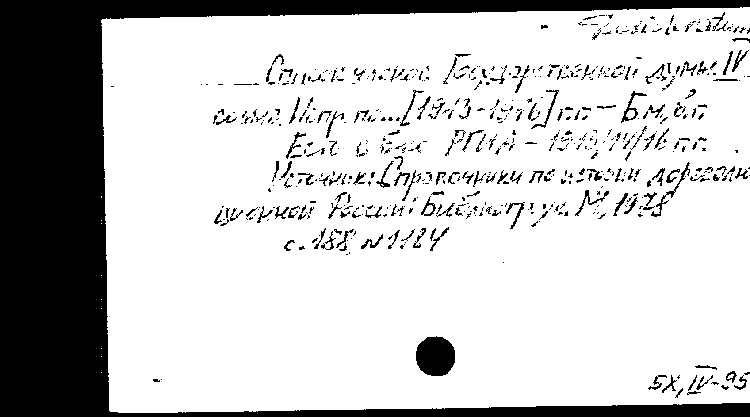 Список членов Государственной думы IV
созыва. Испр. по... [1913-1916] г.г. — Б.м., б.г.
Есть в б-ке РГИА - 1913/14/16 г.г.
Источник: Справочники по истории дореволю
ционной России: Библиогр. ук. М., 1978
с. 188, N 1184
5X, IV-95